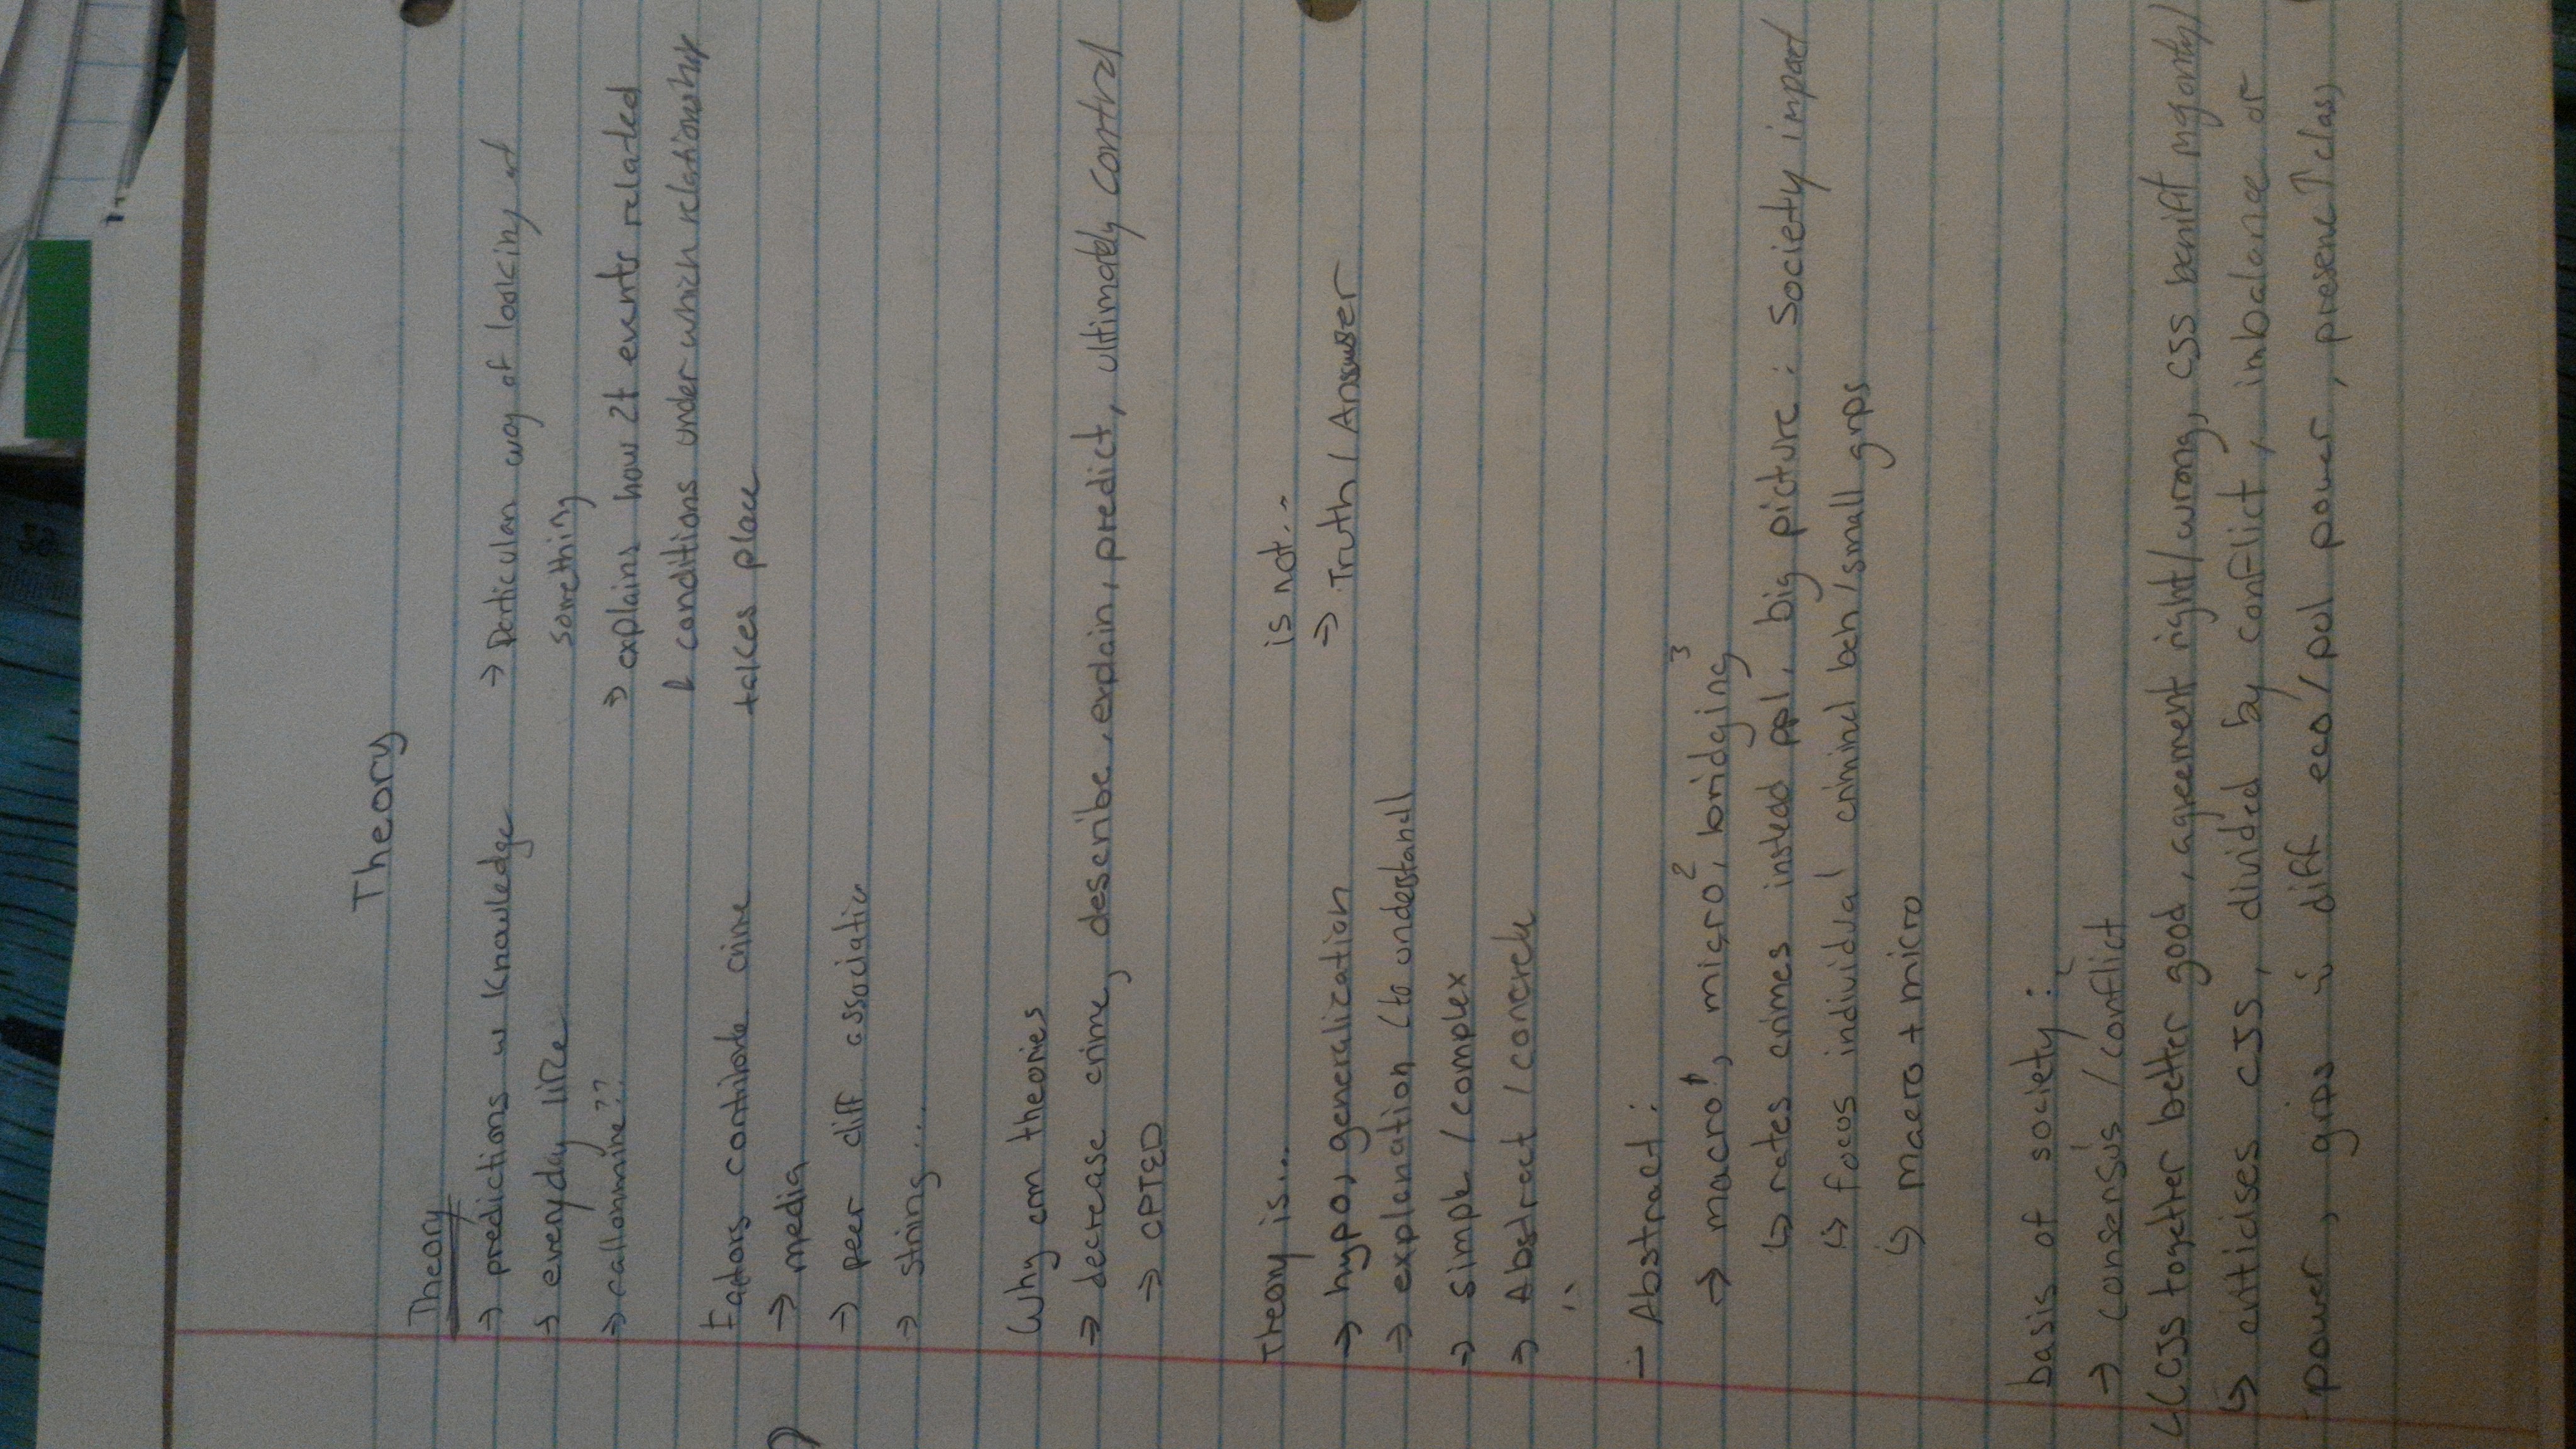 Theory
Theory
→ predictions w knowledge → Particular way of looking at
→ everyday life something
→ rational crime?? → explains how 2+ events related
↳ conditions under which relationship
Factors contribute crime takes place
→ media
→ peer diff association
→ string...
Why crm theories
→ decrease crime, describe, explain, predict, ultimately control
→ CPTED
Theory is... is not...
→ hypo, generalization → Truth / Answer
→ explanation (to understand)
→ simple / complex
→ Abstract / concrete
- Abstract:
→ macro¹, micro², bridging³
↳ rates crimes instead ppl, big picture: Society impact
↳ focus individual criminal beh / small grps
↳ macro + micro
basis of society:
→ consensus¹ / conflict²
↳ CJS together better good, agreement right/wrong, CJS benifit majority
↳ criticises CJS, divided by conflict, inbalance of
power, grps diff eco/pol power, preserve ↑ class